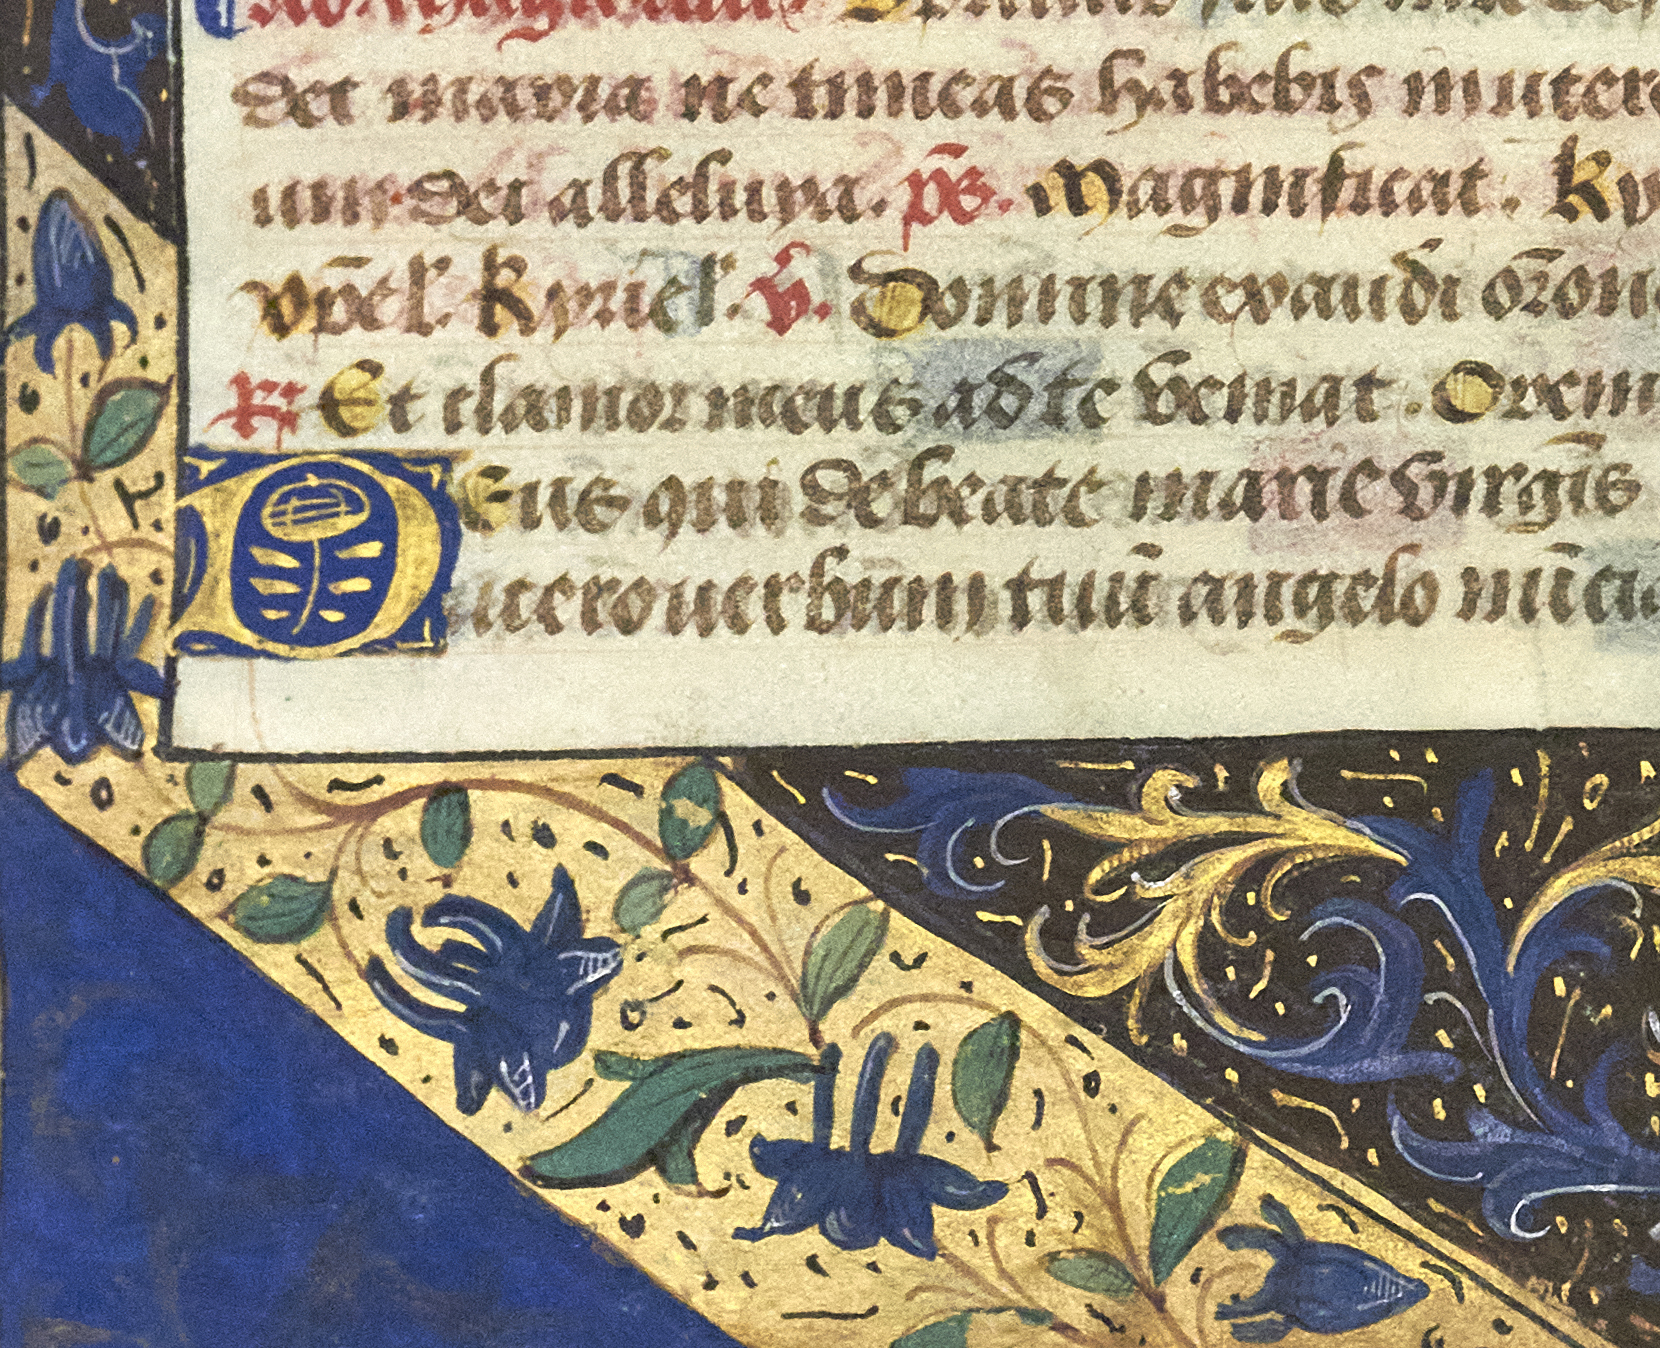 dei maria ne timeas habebis in utero
um dei alleluya. ps̄. Magnificat. Ky
xp̄el'. Kyriel'. v̄. Domine exaudi or̄on
R̄ Et clamor meus ad te veniat. Orem
Deus qui de beate marie virgīs
utero verbum tuū angelo nūcia